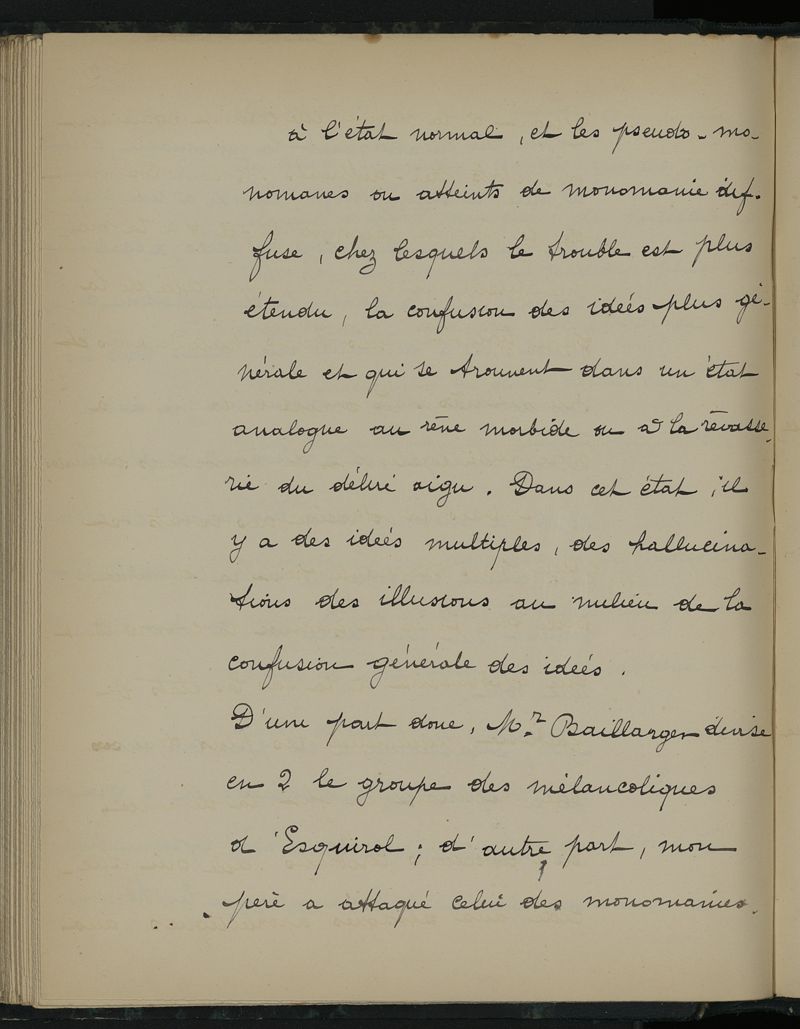 à l'état normal, et les pseudo-mo-
nomanes ou atteints de monomanie dif-
fuse, chez lesquels le trouble est plus
étendu, la confusion des idées plus gé-
nérale et qui se trouvent dans un état
analogue au rêve morbide ou à la rêvasse-
rie du délire aigu. Dans cet état, il
y a des idées multiples, des hallucina-
tions des illusions au milieu de la
confusion générale des idées.
D'une part donc, Mr. Baillarger divise
en 2 le groupe des mélancoliques
d'Esquirol; d'autre part, mon
père a attaqué celui des monomanies.